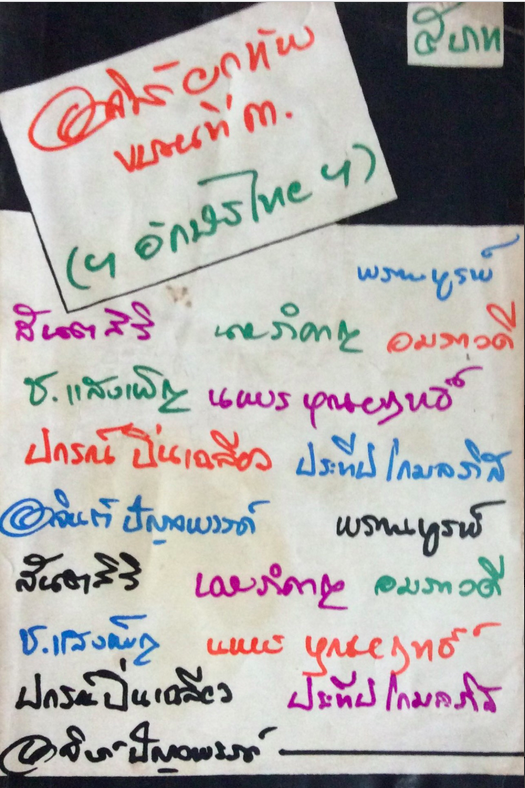 ๕ บาท
อาจินต์ยกทัพ
ขบวนที่ ๓.
(ฯ อักษรไทย ฯ)
พรานบูรพ์
สันตสิริ นายรำคาญ อมราวดี
ช. แสงเพ็ญ นพพร บุณยฤทธิ์
ปกรณ์ ปิ่นเฉลียว ประทีป โกมลภิส
อาจินต์ ปัญจพรรค์ พรานบูรพ์
สันตสิริ นายรำคาญ อมราวดี
ช. แสงเพ็ญ นพพร บุณยฤทธิ์
ปกรณ์ ปิ่นเฉลียว ประทีป โกมลภิส
อาจินต์ ปัญจพรรค์